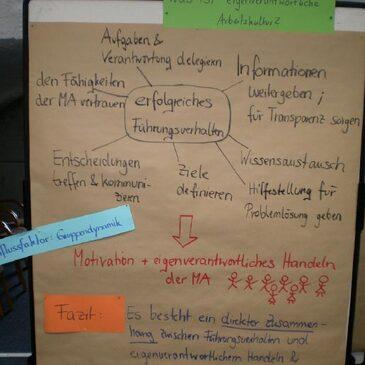 Was ist eigenverantwortliche
Arbeitskultur?
Aufgaben &
Verantwortung delegieren
Informationen
weitergeben ;
für Transparenz sorgen
den Fähigkeiten
der MA vertrauen
erfolgreiches
Führungsverhalten
Wissensaustausch
Entscheidungen
treffen & kommuni-
zieren
Ziele
definieren
Hilfestellung für
Problemlösung geben
flussfaktor: Gruppendynamik
Motivation + eigenverantwortliches Handeln
der MA
Fazit:
Es besteht ein direkter Zusammen-
hang zwischen Führungsverhalten und
eigenverantwortlichem Handeln &